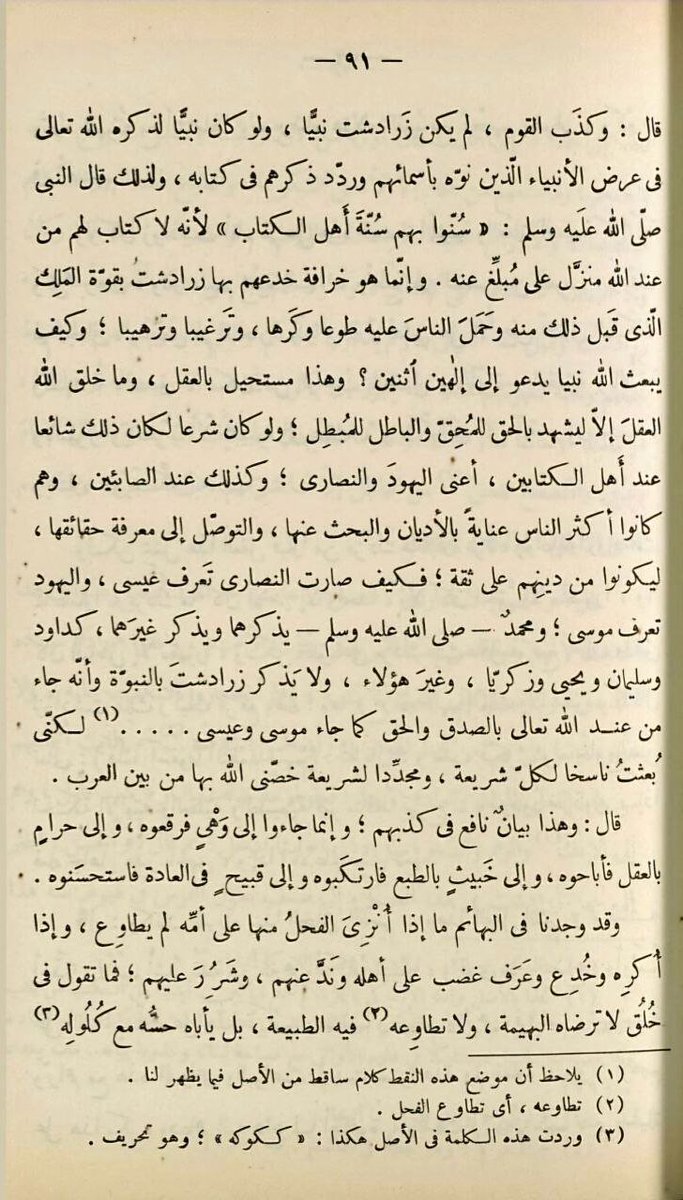 — ٩١ —
قال : وكذَب القوم ، لم يكن زَرادشت نبيًّا ، ولو كان نبيًّا لذكره الله تعالى
فى عرض الأنبياء الّذين نوّه بأسمائهم وردّد ذكرهم فى كتابه ، ولذلك قال النبى
صلّى الله علَيه وسلم : « سُنّوا بهم سُنّةَ أَهل الكتاب » لأنّه لا كتاب لهم من
عند الله منزَّل على مُبلِّغ عنه . وإنّما هو خرافة خدعهم بها زرادشتُ بقوّة المَلِك
الّذى قَبِل ذلك منه وحَمَلَ الناسَ عليه طوعا وكَرها ، وتَرغيبا وترهيبا ؛ وكيف
يبعث الله نبيا يدعو إلى إلٰهين ٱثنين ؟ وهذا مستحيل بالعقل ، وما خلق الله
العقلَ إلاّ ليشهد بالحق للمُحِقّ والباطل للمُبطِل ؛ ولو كان شرعا لكان ذلك شائعا
عند أَهل الكتابين ، أعنى اليهودَ والنصارى ؛ وكذلك عند الصابئين ، وهم
كانوا أكثر الناس عنايةً بالأديان والبحث عنها ، والتوصّل إلى معرفة حقائقها ،
ليكونوا من دينِهم على ثقة ؛ فكيف صارت النصارى تَعرف عيسى ، واليهود
تعرف موسى ؛ ومحمدٌ — صلى الله عليه وسلم — يذكرهما ويذكر غيرَهما ، كداود
وسليمان ويحيى وزكريّا ، وغيرَ هؤلاء ، ولا يَذكر زرادشتَ بالنبوّة وأنّه جاء
من عند الله تعالى بالصدق والحق كما جاء موسى وعيسى . . . . .(١) لكنّى
بُعثتُ ناسخا لكلّ شريعة ، ومجدِّدا لشريعة خصّنى الله بها من بين العرب .
قال : وهذا بيانٌ نافع فى كذبهم ؛ وإنما جاءوا إلى وَهْىٍ فرقعوه ، وإلى حرامٍ
بالعقل فأباحوه ، وإلى خَبيثٍ بالطبع فارتكَبوه وإلى قبيح ٍ فى العادة فاستحسَنوه .
وقد وجدنا فى البهائم ما إذا أُنْزِىَ الفحلُ منها على أمِّه لم يطاوِع ، وإذا
أُكرِه وخُدِع وعَرَف غضب على أهله ونَدَّ عنهم ، وشَرُرَ عليهم ؛ فما تقول فى
خُلُق لا ترضاه البهيمة ، ولا تطاوعه(٢) فيه الطبيعة ، بل يأباه حسُّه مع كُلُولِه(٣)
(١) يلاحظ أن موضع هذه النقط كلام ساقط من الأصل فيما يظهر لنا .
(٢) تطاوعه ، أى تطاوع الفحل .
(٣) وردت هذه الكلمة فى الأصل هكذا : « ككوكه » ؛ وهو تحريف .